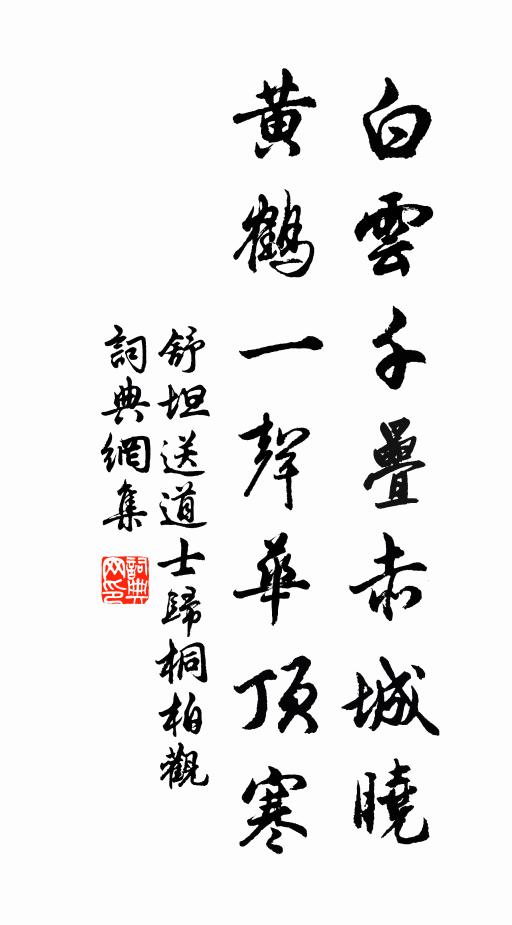 白雲千疊赤城曉
黃鶴一聲華頂寒
舒坦送道士歸桐柏觀
詞典網集
詞典網印